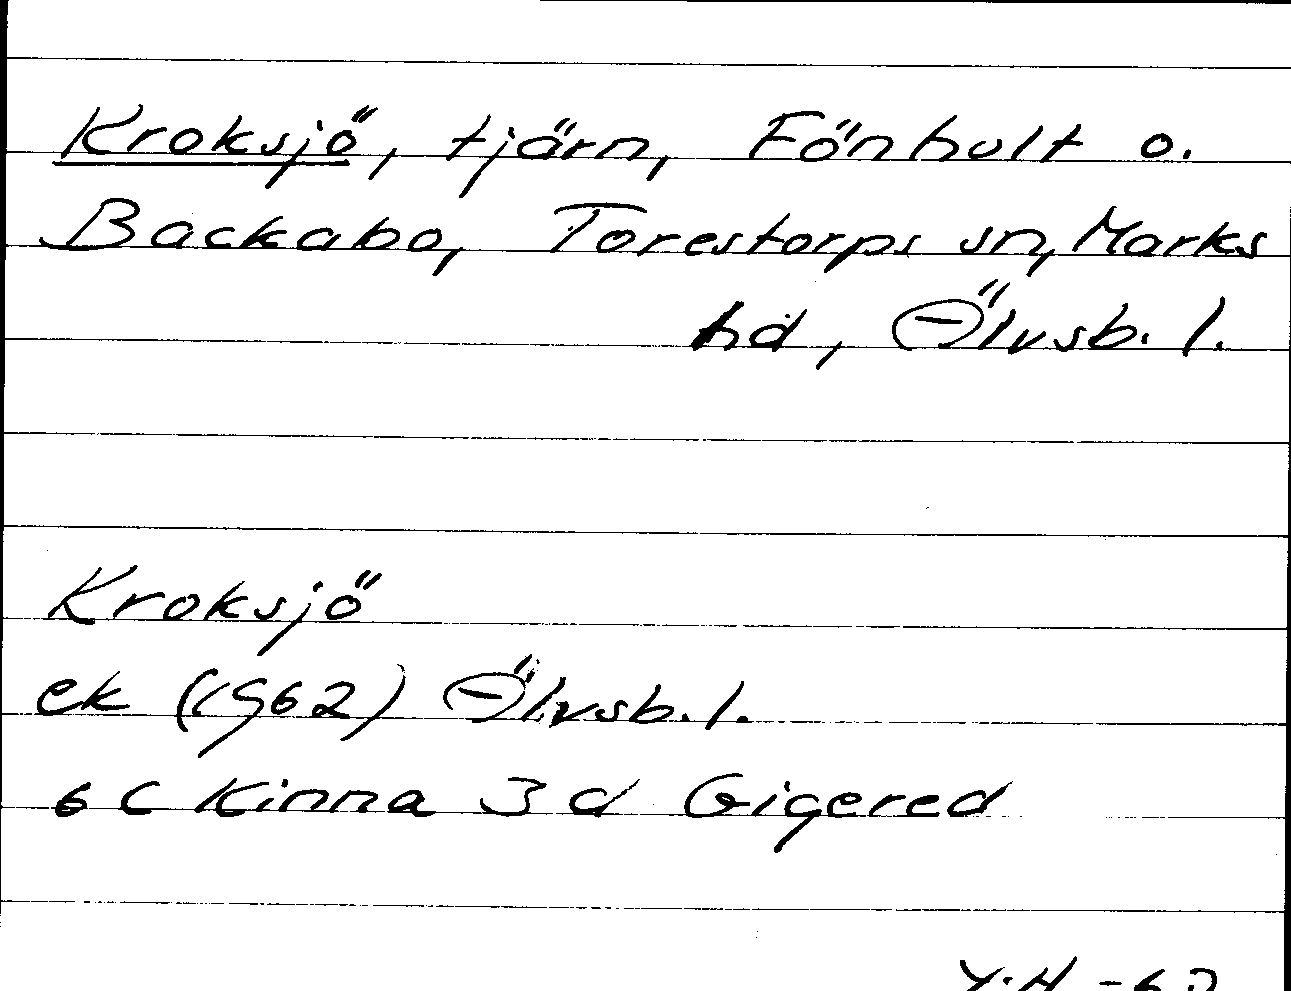 Kroksjö, tjärn, Fönhult o.
Backabo, Torestorps sn, Marks
hd, Älvsb. l.
Kroksjö
ek (1962) Älvsb. l.
6 C Kinna 3 d Gigered